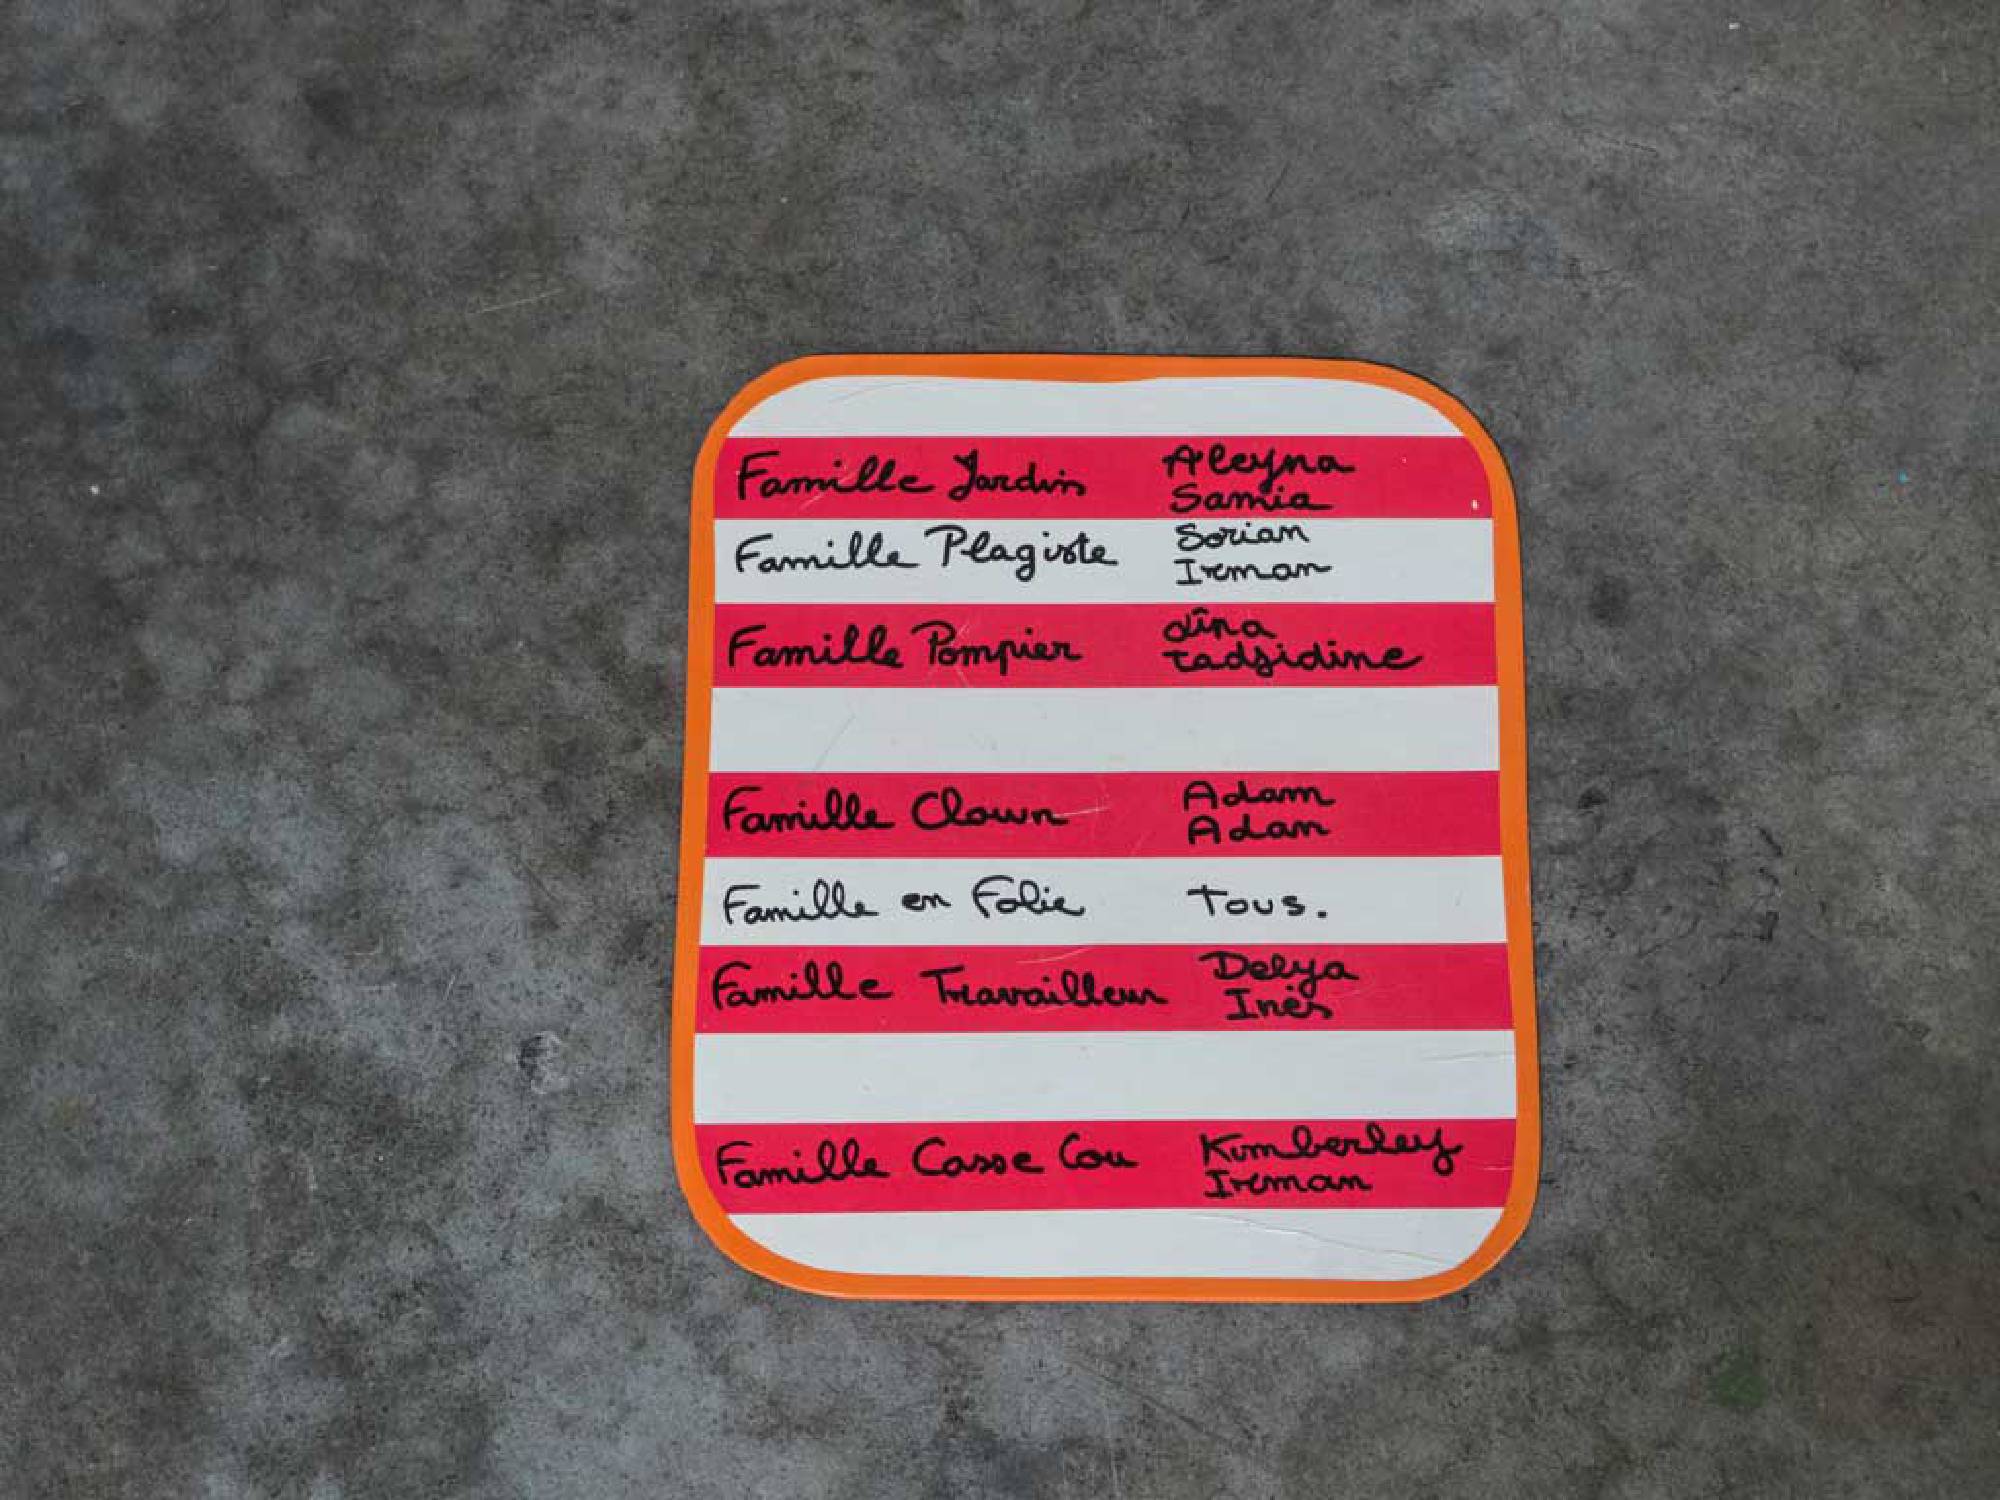 Famille Jardin Aleyna
Samia
Famille Plagiste Sorian
Irman
Famille Pompier Lîna
Tadjidine
Famille Clown Adam
Adam
Famille en Folie Tous.
Famille Travailleur Delya
Inès
Famille Casse Cou Kimberley
Irman